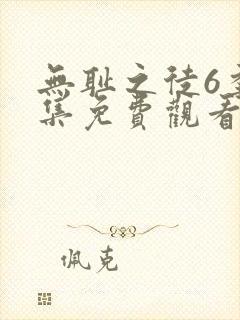 無耻之徒6
集免費觀看
佩克